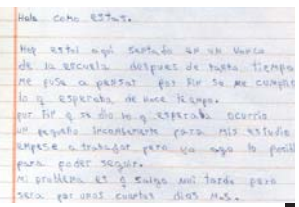 Hola como estas.
Hoy estoi aqui sentado en un vanco
de la escuela despues de tanto tiempo
me puse a pensar por fin se me cumplio
lo q esperaba de hace tiempo.
por fin q se dio lo q esperaba ocurrio
un pequeño inconveniente para mis estudio
empese a trabajar pero ya ago lo posibl
para poder seguir.
mi problema es q salgo mui tarde pero
sera por unos cuantos dias mas.